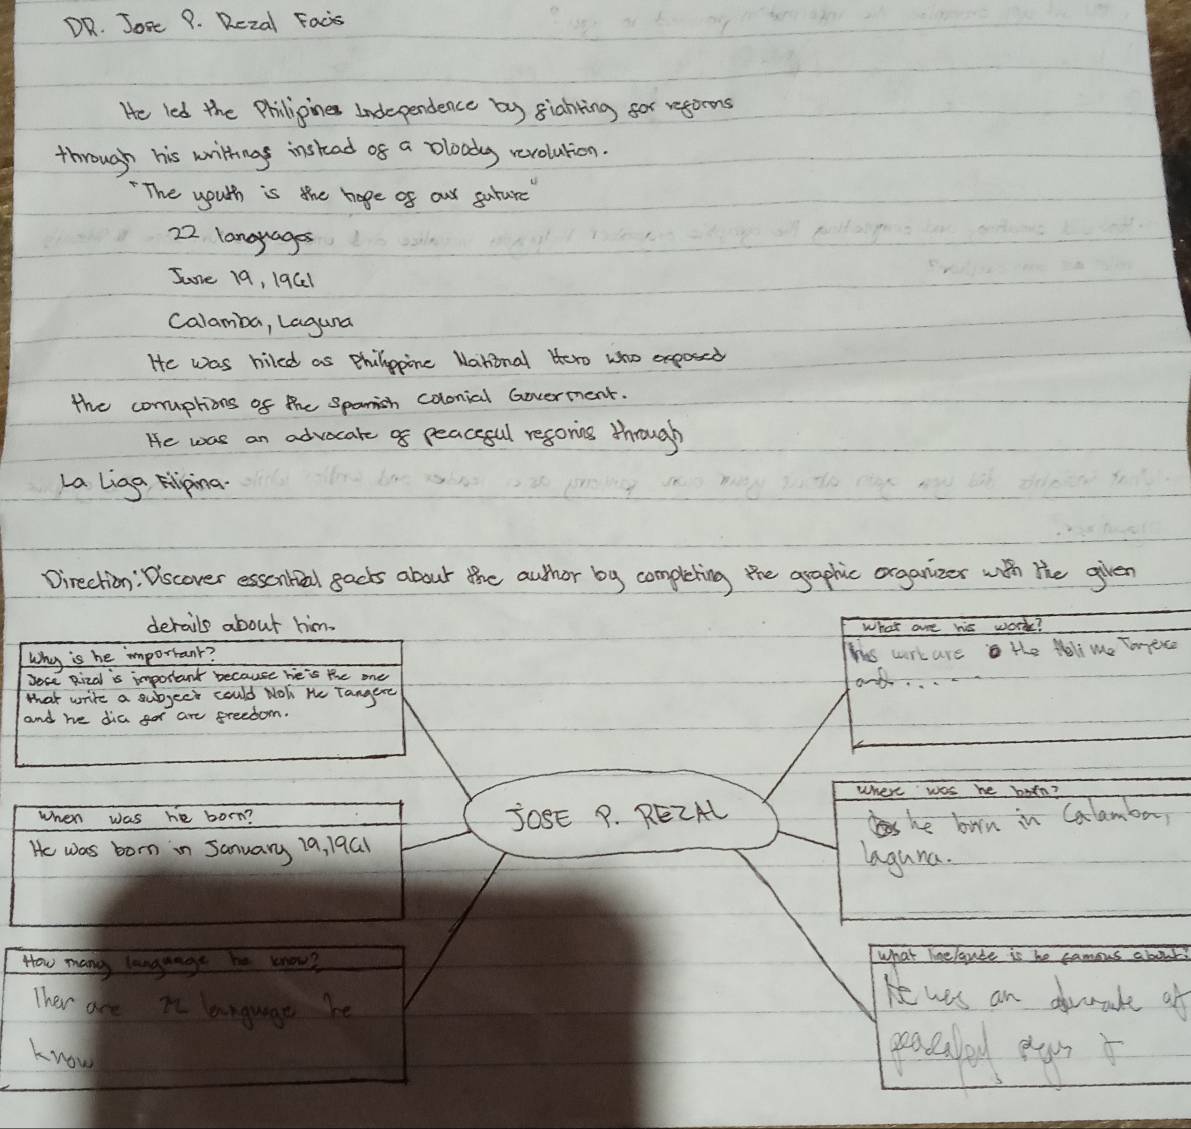 DR. Jose P. Rezal Facis
He led the Philipines Independence by fighting for reforms
through his writtings instead of a bloody revolution.
"The youth is the hope of our future"
22 languages
June 19, 1961
Calamba, Laguna
He was hiled as Philippine National Hero who exposed
the corruptions of the Spanish colonial Goverment.
He was an advocate of peaceful reforms through
La Liga Filipina.
Direction: Discover essential facts about the author by completing the graphic organizer with the given
details about him.
What are his work?
his work are the Noli me Tangere
and . . . . .
Why is he important?
Jose Rizal is important because he is the one
that write a subject could Noli Me Tangere
and he dia for are freedom.
JOSE P. REZAL
Where was he born?
he born in Calamba,
laguna.
When was he born?
He was born in January 19, 1961
How many language he know?
Ther are 22 language he
know
What line/qoute is he famous about?
He wes an of